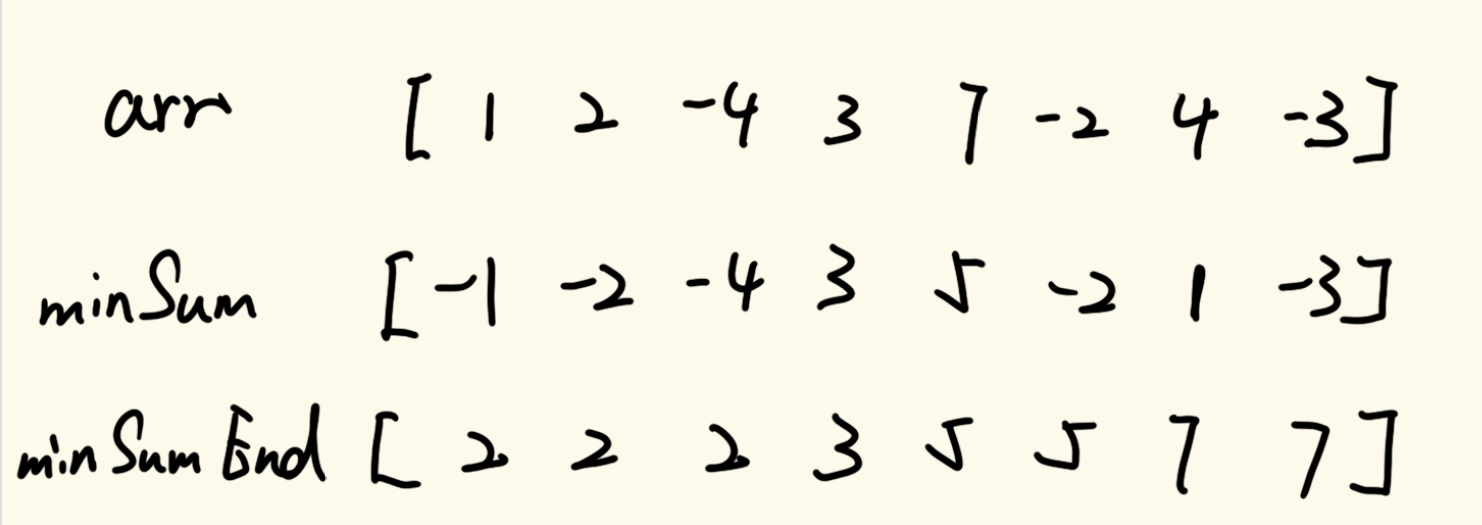 arr [ 1 2 -4 3 7 -2 4 -3]
minSum [-1 -2 -4 3 5 -2 1 -3]
minSumEnd [ 2 2 2 3 5 5 7 7 ]